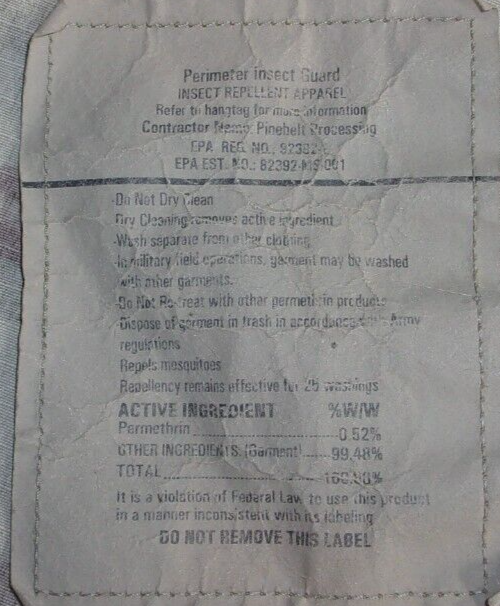 Perimeter Insect Guard
INSECT REPELLENT APPAREL
Refer to hangtag for more information
Contractor Name: Pinebelt Processing
EPA REG. NO.: 82392-
EPA EST. NO.: 82392-MS-001
-Do Not Dry Clean
Dry Cleaning removes active ingredient
-Wash separate from other clothing
-In military field operations, garment may be washed
with other garments.
-Do Not Re-treat with other permethrin products
-Dispose of garment in trash in accordance with Army
regulations
Repels mosquitoes
Repellency remains effective for 25 washings
ACTIVE INGREDIENT %W/W
Permethrin 0.52%
OTHER INGREDIENTS: (Garment) 99.48%
TOTAL 100.00%
It is a violation of Federal Law to use this product
in a manner inconsistent with its labeling
DO NOT REMOVE THIS LABEL